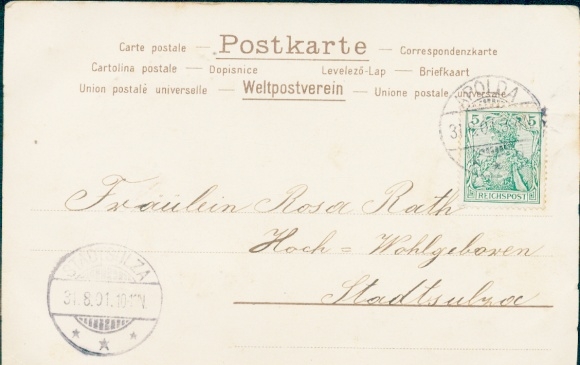 Carte postale — Postkarte — Correspondenzkarte
Cartolina postale — Dopisnice Levelező-Lap — Briefkaart
Union postale universelle — Weltpostverein — Unione postale
APOLDA
5 5
REICHSPOST
Fräulein Rosa Rath
Hoch = Wohlgeboren
Stadtsulza
STADTSULZA
31.8.01.